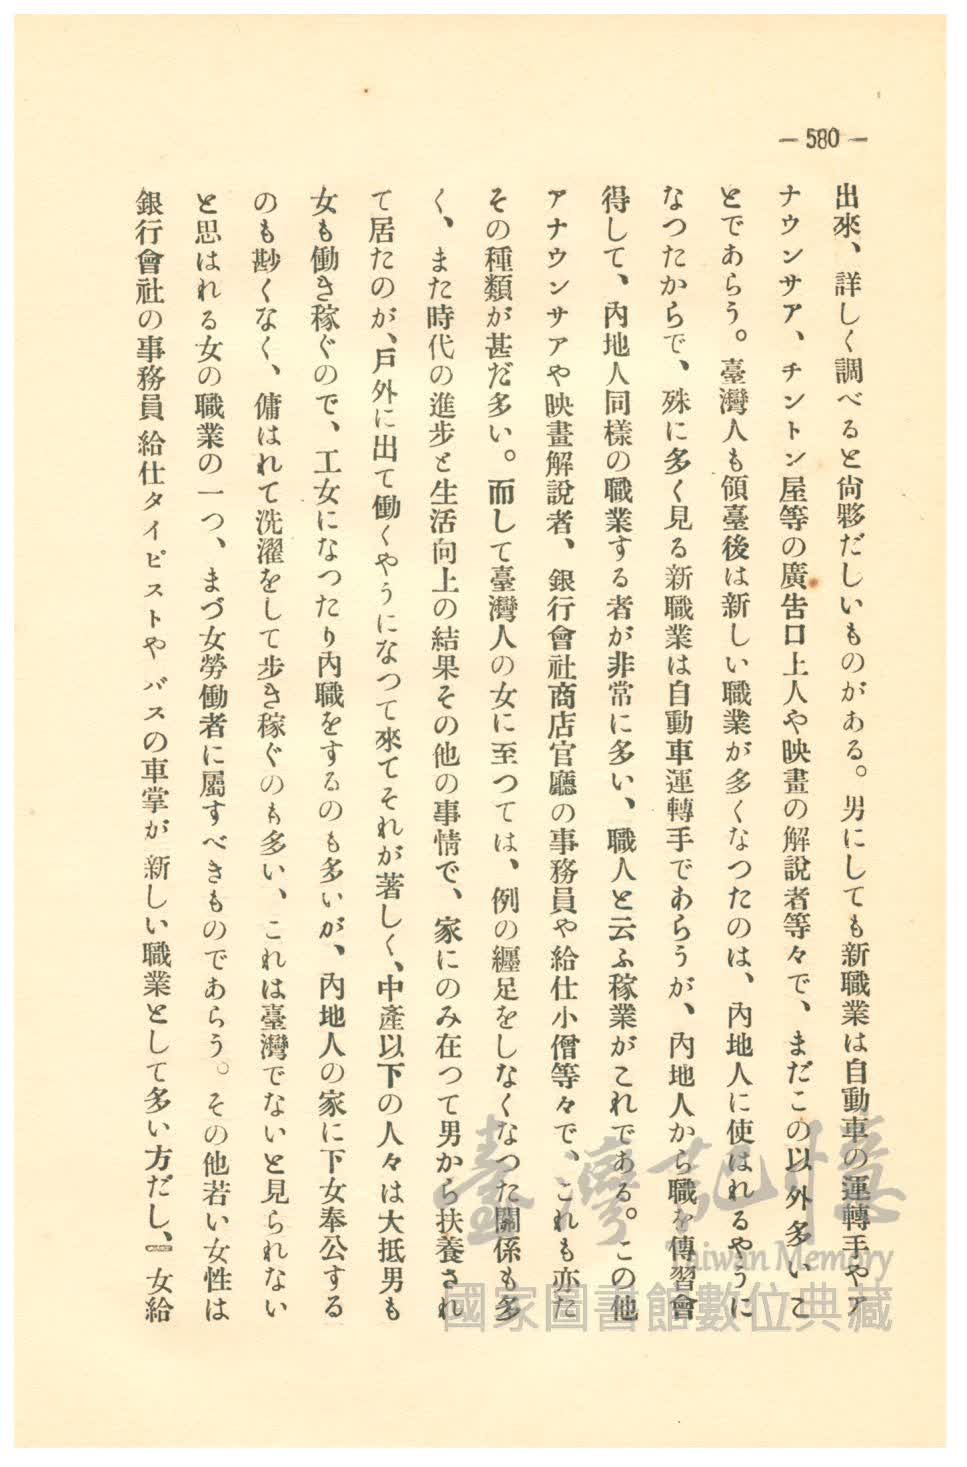 — 580 —
出來、詳しく調べると尙夥だしいものがある。男にしても新職業は自動車の運轉手やア
ナウンサア、チントン屋等の廣告口上人や映畫の解說者等々で、まだこの以外多いこ
とであらう。臺灣人も領臺後は新しい職業が多くなつたのは、內地人に使はれるやうに
なつたからで、殊に多く見る新職業は自動車運轉手であらうが、內地人から職を傳習會
得して、內地人同樣の職業する者が非常に多い、職人と云ふ稼業がこれである。この他
アナウンサアや映畫解說者、銀行會社商店官廳の事務員や給仕小僧等々で、これも亦た
その種類が甚だ多い。而して臺灣人の女に至つては、例の纏足をしなくなつた關係も多
く、また時代の進步と生活向上の結果その他の事情で、家にのみ在つて男から扶養され
て居たのが、戶外に出て働くやうになつて來てそれが著しく、中產以下の人々は大抵男も
女も働き稼ぐので、工女になつたり內職をするのも多いが、內地人の家に下女奉公する
のも尠くなく、傭はれて洗濯をして步き稼ぐのも多い、これは臺灣でないと見られない
と思はれる女の職業の一つ、まづ女勞働者に屬すべきものであらう。その他若い女性は
銀行會社の事務員給仕タイピストやバスの車掌が新しい職業として多い方だし、女給
臺灣記憶
Taiwan Memory
國家圖書館數位典藏